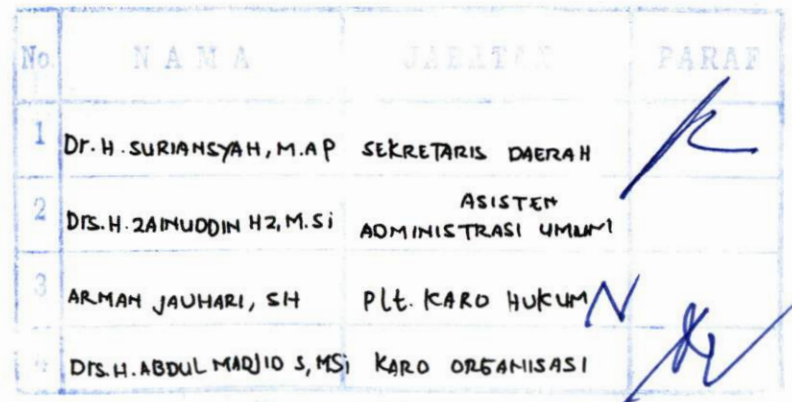 No. NAMA JABATAN PARAF
1 Dr. H. SURIANSYAH, M.AP SEKRETARIS DAERAH
2 Drs. H. ZAINUDDIN HZ, M.Si ASISTEN
ADMINISTRASI UMUM
3 ARMAN JAUHARI, SH Plt. KARO HUKUM
Drs. H. ABDUL MADJID S, MSi KARO ORGANISASI